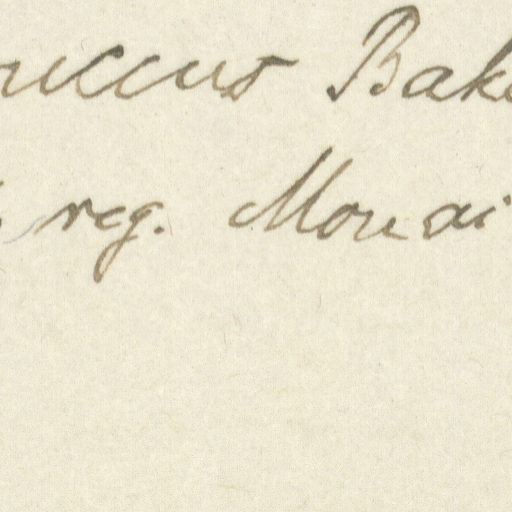 uccus Bak
reg. Mouai